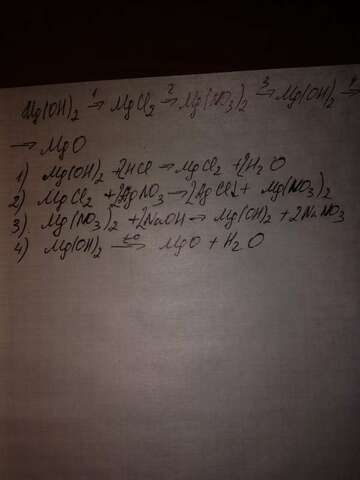 Mg(OH)2 1→ MgCl2 2→ Mg(NO3)2 3→ Mg(OH)2 4→
→ MgO
1) Mg(OH)2 + 2HCl → MgCl2 + 2H2O
2) MgCl2 + 2AgNO3 → 2AgCl↓ + Mg(NO3)2
3) Mg(NO3)2 + 2NaOH → Mg(OH)2 + 2NaNO3
4) Mg(OH)2 t°→ MgO + H2O